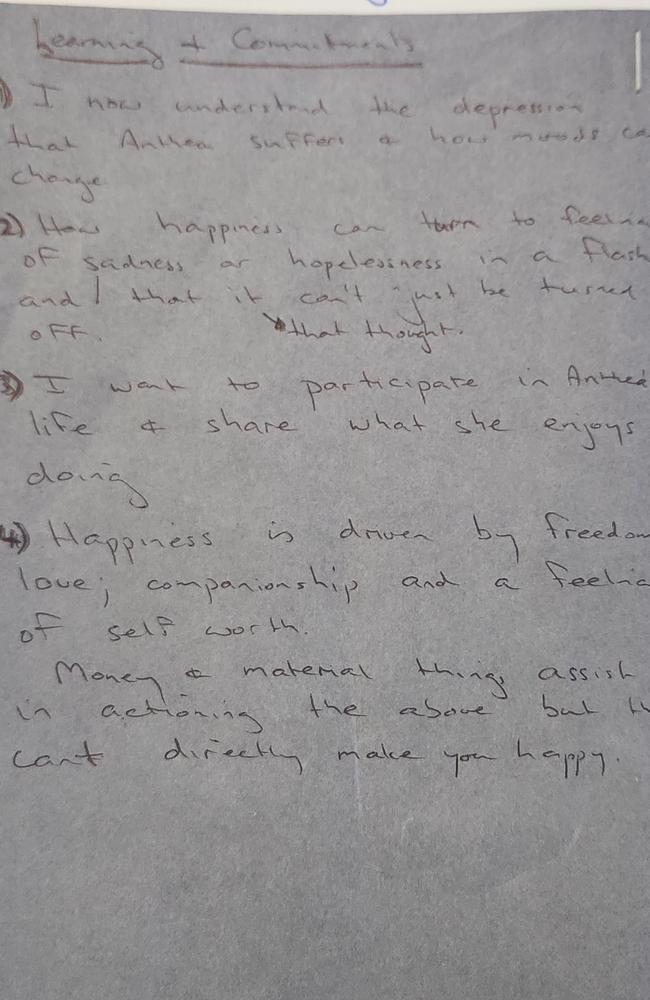 Learning & Commitments
1) I now understand the depression
that Anthea suffers & how moods ca
change
2) How happiness can turn to feelin
of sadness or hopelessness in a flash
and / that it can't just be turned
off. that thought.
3) I want to participate in Anthea
life & share what she enjoys
doing
4) Happiness is driven by freedom
love; companionship and a feelin
of self worth.
Money & material things assist
in actioning the above but th
cant directly make you happy.